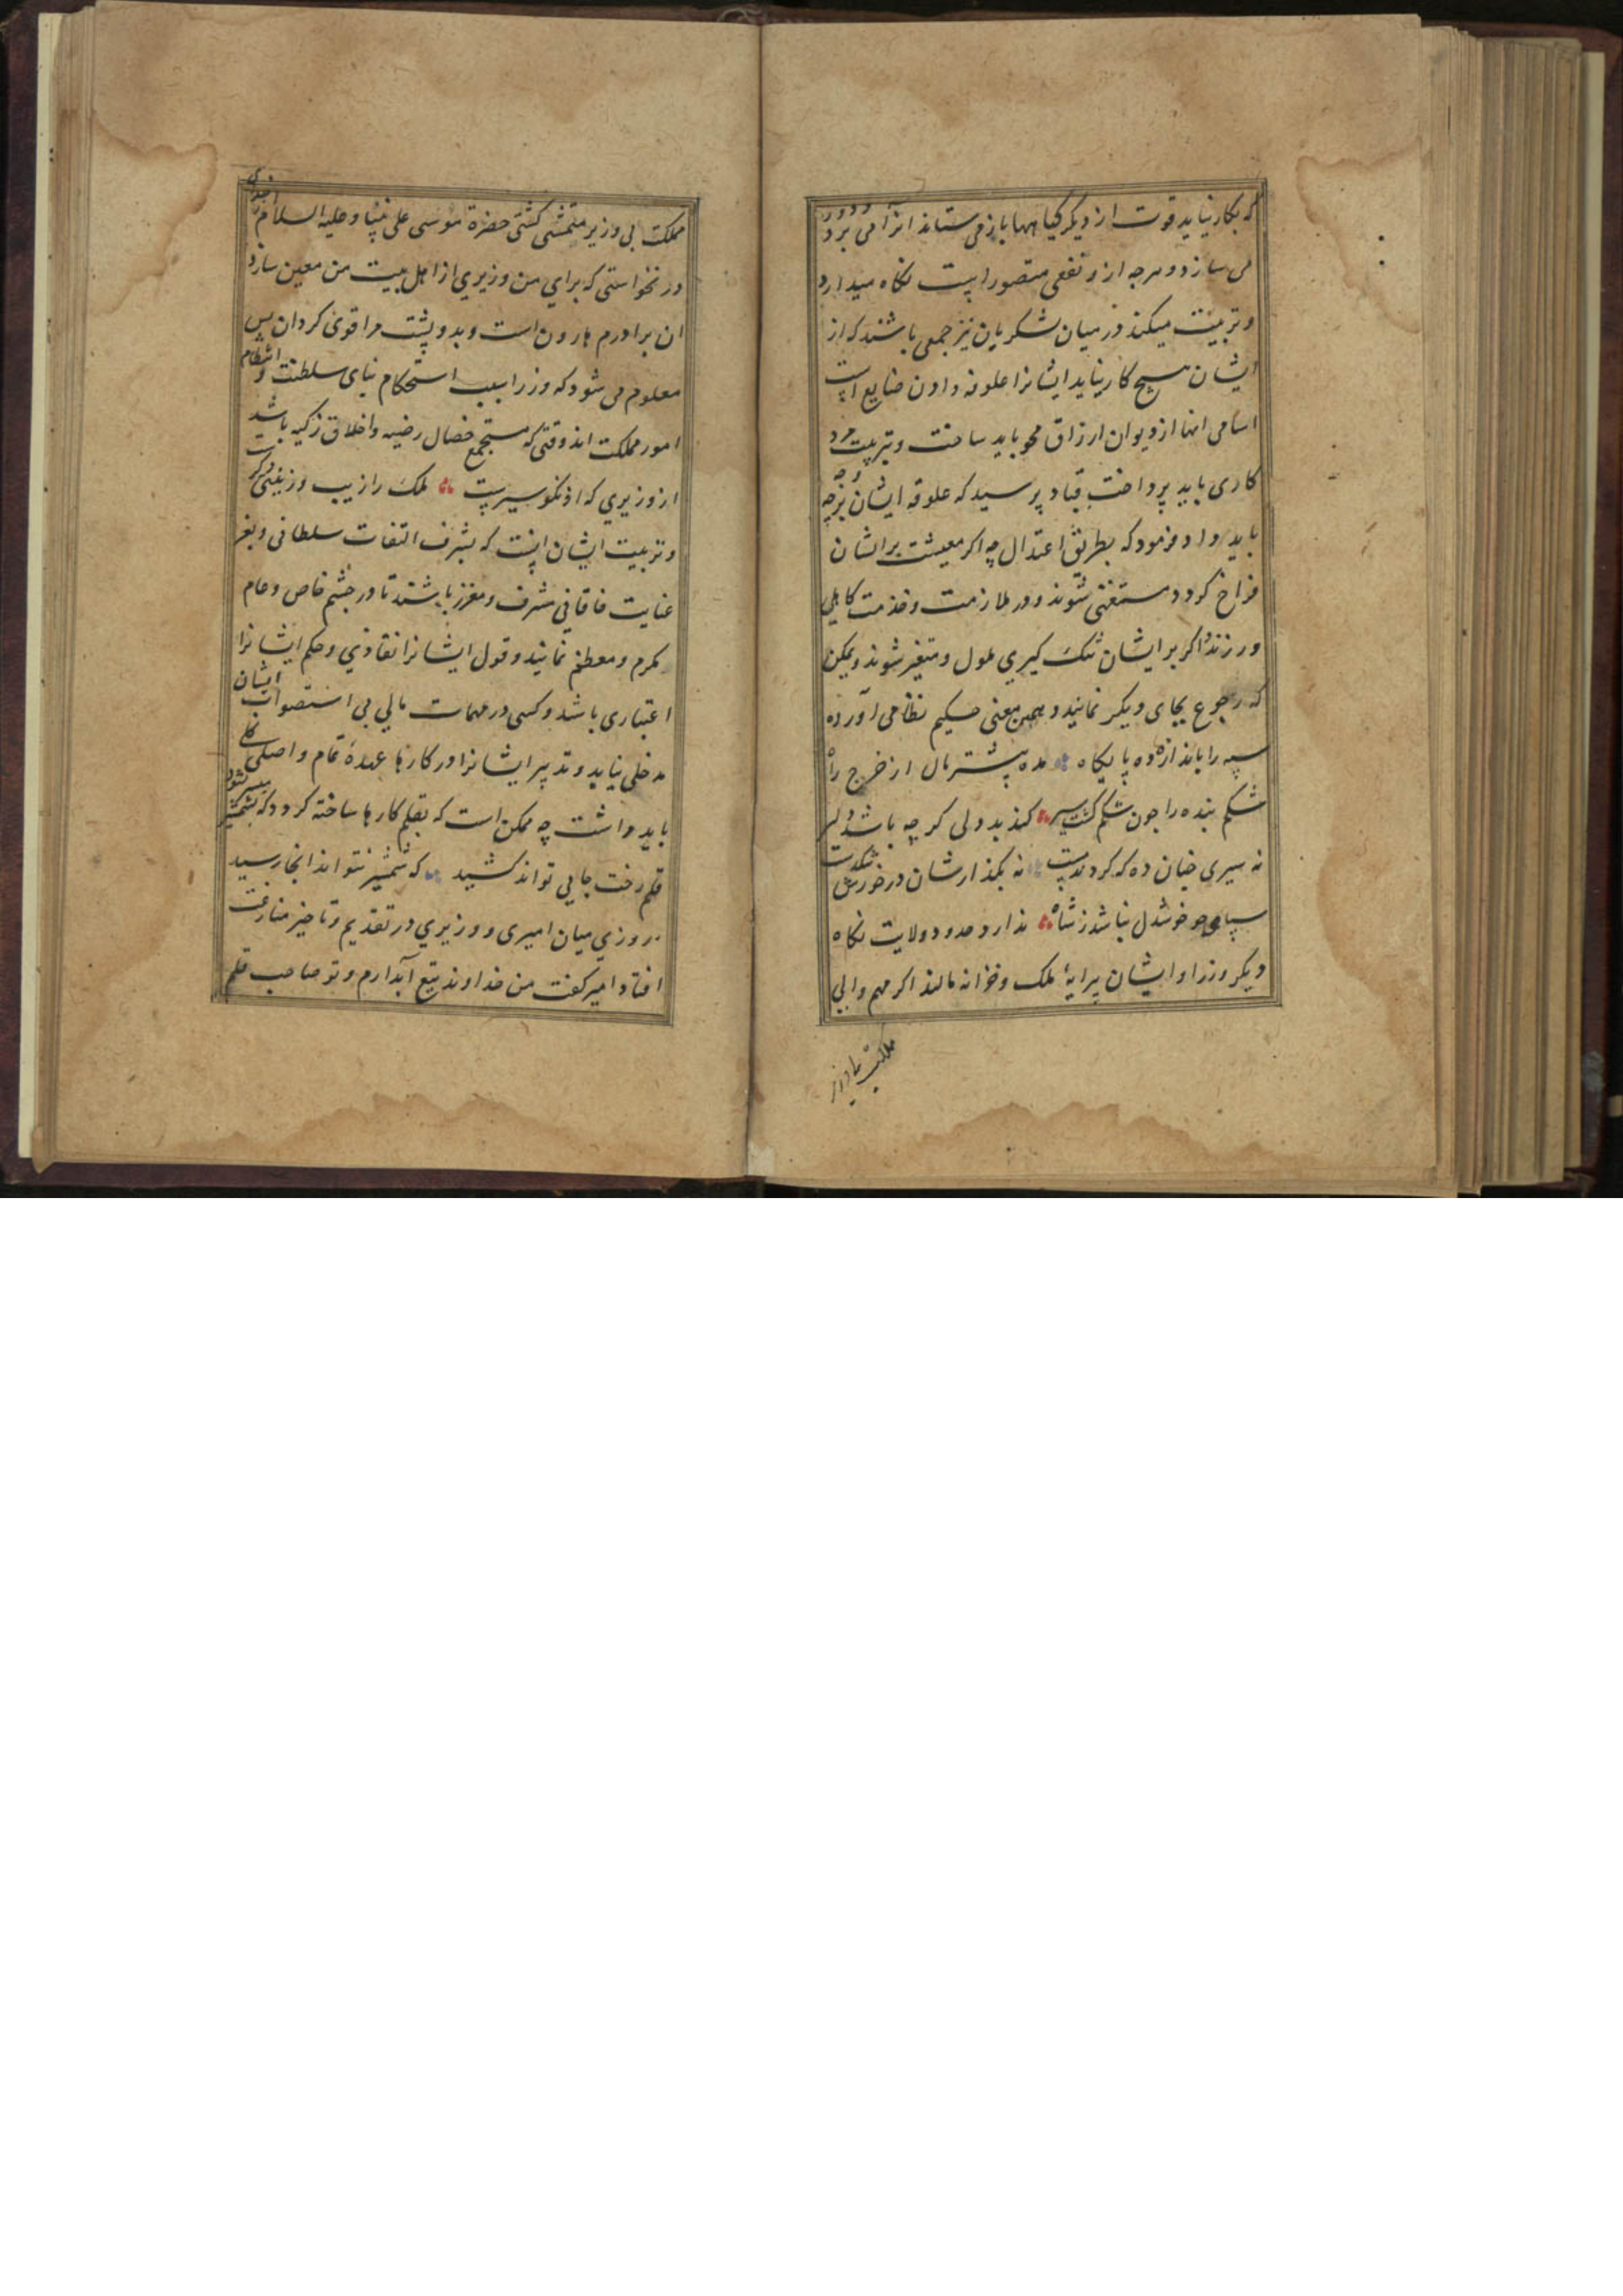 که بکار نیاید قوت از دیکر کیاهها باز می ستاند انرا می برد و دور
می سازد و هرچه ازو نفعی متصور است نکاه میدارد
و تربیت میکند در میان لشکریان نیز جمعی باشند که از
ایشان هیچ کار نیاید ایشانرا علوفه دادن ضایع است
اسامی انها از دیوان ارزاق محو باید ساخت و بتربیت مرد
کاری باید پرداخت قباد پرسید که علوفه ایشان برچه وجه
باید داد فرمود که بطریق اعتدال چه اکر معیشت برایشان
فراخ کردد مستغنی شوند و در ملازمت و خدمت کاهلی
ورزند و اکر بر ایشان تنک کیری ملول و متغیر شوند و یمکن
که رجوع بجای دیکر نمایند و همین معنی حکیم نظامی آورده
سپه را باندازه ده پایکاه مده بیشتر مال از خرج راه
شکم بنده را چون شکم کشت سیر کند بد دلی کرچه باشد دلیر
نه سیری چنان ده که کردند مست نه بکذارشان در خورش تنکدست
سپاهی چو خوشدل نباشد ز شاه ندارد حدود ولایت نکاه
دیکر وزرا و ایشان پیرایهٔ ملک و خزانه مالند اکر مهم والی
مملکت بی وزیر متمشی کشتی حضرة موسی علی نبینا و علیه السلام
در نخواستی که برای من وزیری از اهل بیت من معین سازد
ان برادرم هارون است و بدو پشت مرا قوی کردان پس
معلوم می شود که وزرا سبب استحکام بنای سلطنت و انتظام
امور مملکت اند وقتی که مستجمع خصال رضیه و اخلاق زکیه باشد
از وزیری که او نکو سیرست ملک را زیب و زینتی دکرست
و تربیت ایشان اینست که بشرف التفات سلطانی و بعز
عنایت خاقانی مشرف و معزز باشند تا در چشم خاص و عام
مکرم و معظم نمایند و قول ایشانرا نفاذی و حکم ایشانرا
اعتباری باشد و کسی در مهمات مالی بی استصواب ایشان
مدخلی نیابد و تدبیر ایشانرا در کارها عمدهٔ تمام و اصلی کلی
باید داشت چه ممکن است که بقلم کارها ساخته کردد که بشمشیر میسر نشود
قلم رخت جایی تواند کشید که شمشیر نتواند انجا رسید
روزی میان امیری و وزیری در تقدیم و تاخیر منازعت
افتاد امیر کفت من خداوند تیغ آبدارم و تو صاحب قلم